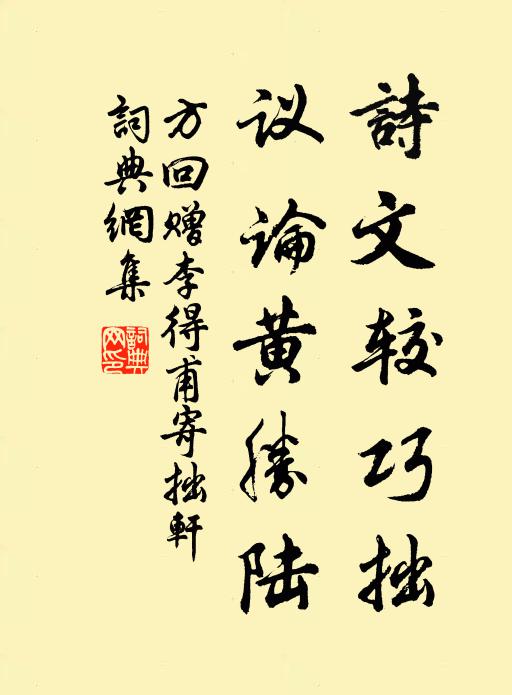 詩文较巧拙
议論黄勝陆
方回赠李得甫寄拙軒
詞典網集
詞典网印